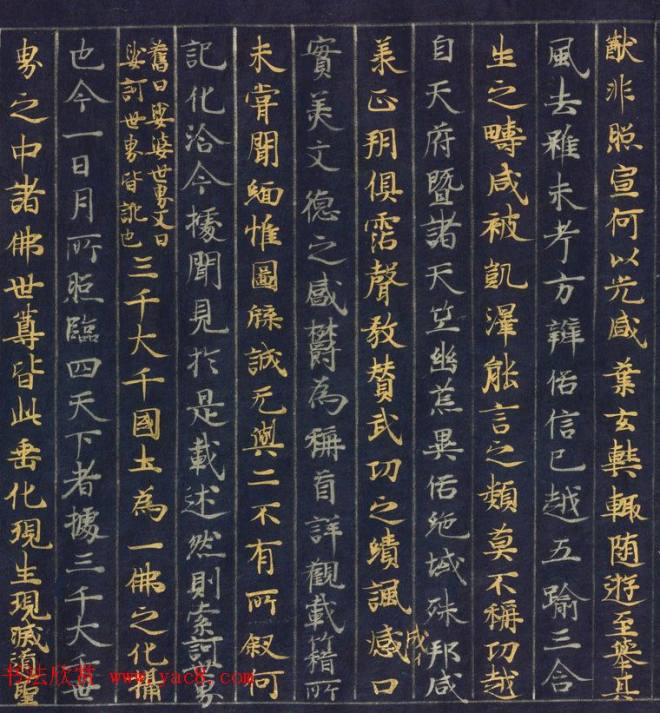 猷非照宣何以光咸葉玄奘輒随遊至舉其
風去雖未考方辨俗信已越五踰三含
生之疇咸被凱澤能言之類莫不稱功越
自天府暨諸天竺幽荒異俗絶域殊邦咸
承正朔俱霑聲教賛武功之績諷感成口
實美文德之感欝為稱首詳觀載籍所
未甞聞緬惟圖牒誠无與二不有所叙何
記化洽今據聞見於是載述然則索訶世界
舊曰娑婆世界文曰
娑訶世界皆訛也
三千大千國土為一佛之化攝
也今一日月所照臨四天下者據三千大千世
界之中諸佛世尊皆此垂化現生現滅導聖
书法欣赏 www.yac8.com